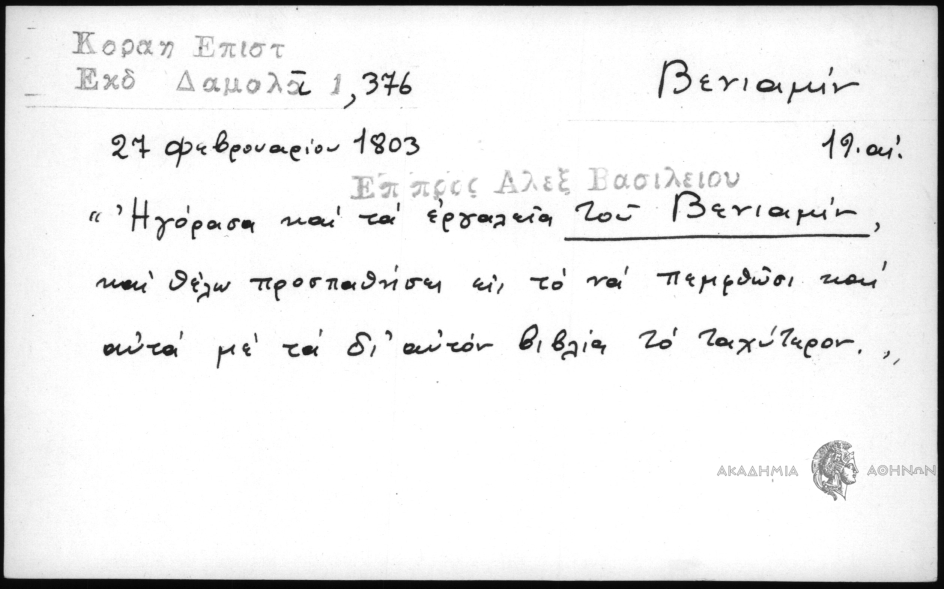 Κοραη Επιστ
Εκδ Δαμαλᾶ 1,376
Βενιαμίν
27 Φεβρουαρίου 1803
19. αἰ.
Επ προς Αλεξ Βασιλειου
"Ἠγόρασα καί τά ἐργαλεῖα τοῦ Βενιαμίν,
καί θέλω προσπαθήσει εἰς τό νά πεμφθῶσι καί
αὐτά μέ τά δι' αὐτόν βιβλία τό ταχύτερον."
ΑΚΑΔΗΜΙΑ ΑΘΗΝΩΝ